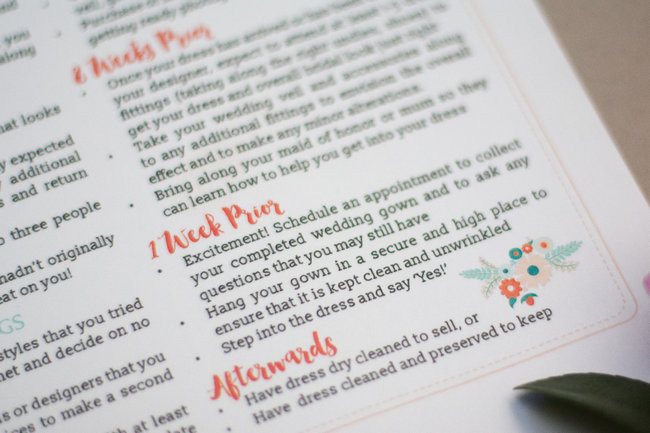 you
along
that looks
expected
additional
s and return
three people
hadn't originally
eat on you!
GS
styles that you tried
net and decide on no
s or designers that you
ices to make a second
at least
getting ready
8 Weeks Prior
Once your dress has arrived
your designer, expect to attend at least
fittings (taking along the right
get your dress and overall bridal look just right
Take your wedding veil and accessories along
to any additional fittings to envision the overall
effect and to make any minor alterations.
Bring along your maid of honor or mum so they
can learn how to help you get into your dress
1 Week Prior
Excitement! Schedule an appointment to collect
your completed wedding gown and to ask any
questions that you may still have
Hang your gown in a secure and high place to
ensure that it is kept clean and unwrinkled
Step into the dress and say 'Yes!'
Afterwards
Have dress dry cleaned to sell, or
Have dress cleaned and preserved to keep